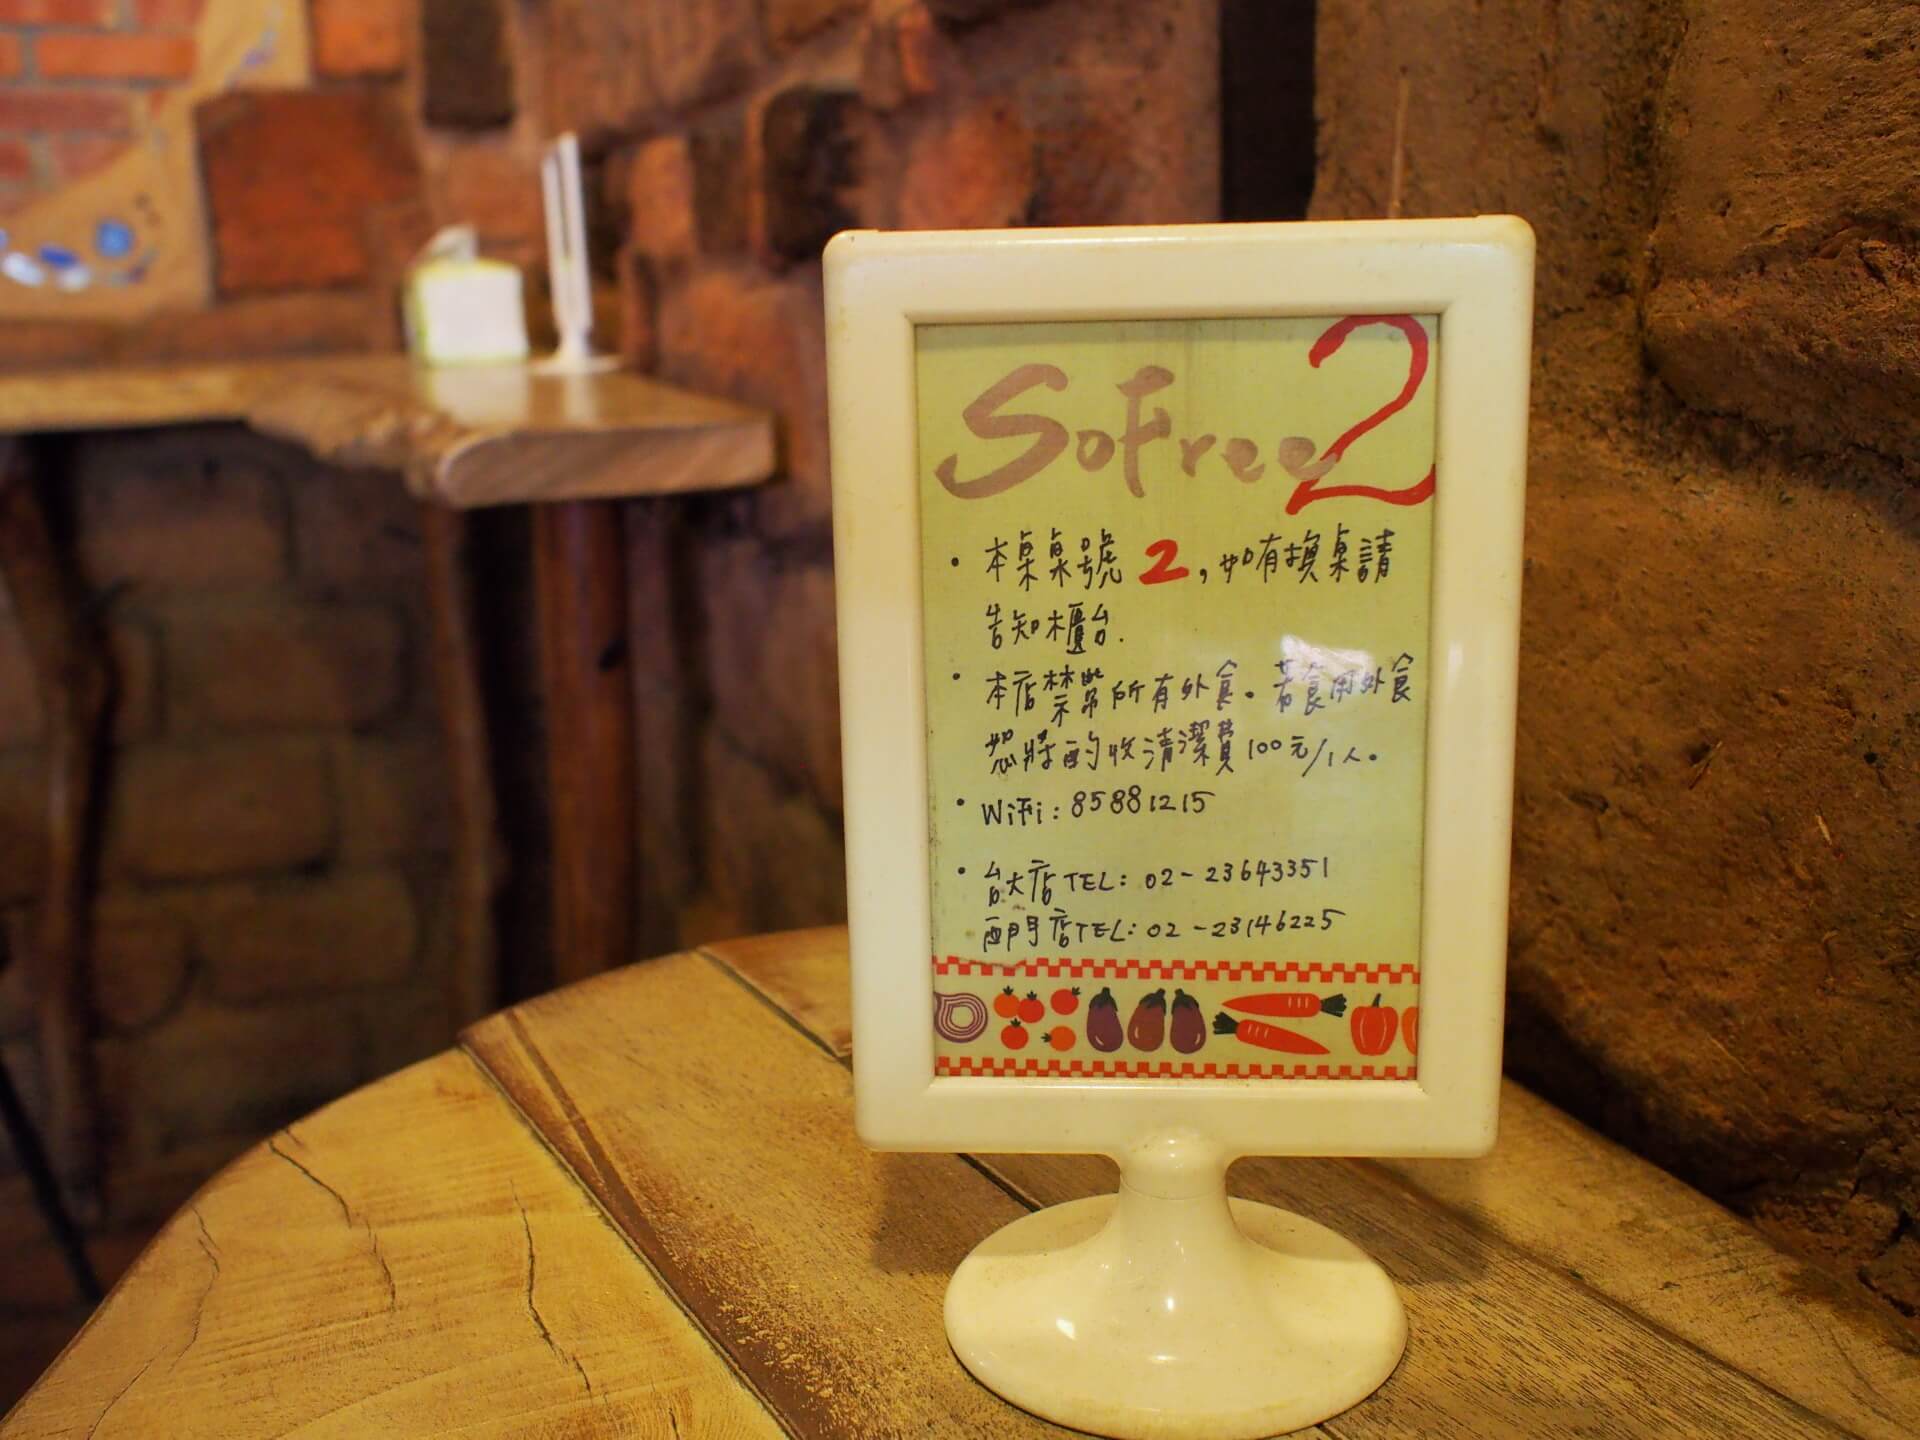 SoFree 2
• 本桌桌號 2,如有換桌請
告知櫃台.
• 本店禁帶所有外食。若食用外食
恕將酌收清潔費100元/1人。
• WiFi: 85881215
• 台大店TEL: 02-23643351
西門店TEL: 02-23146225